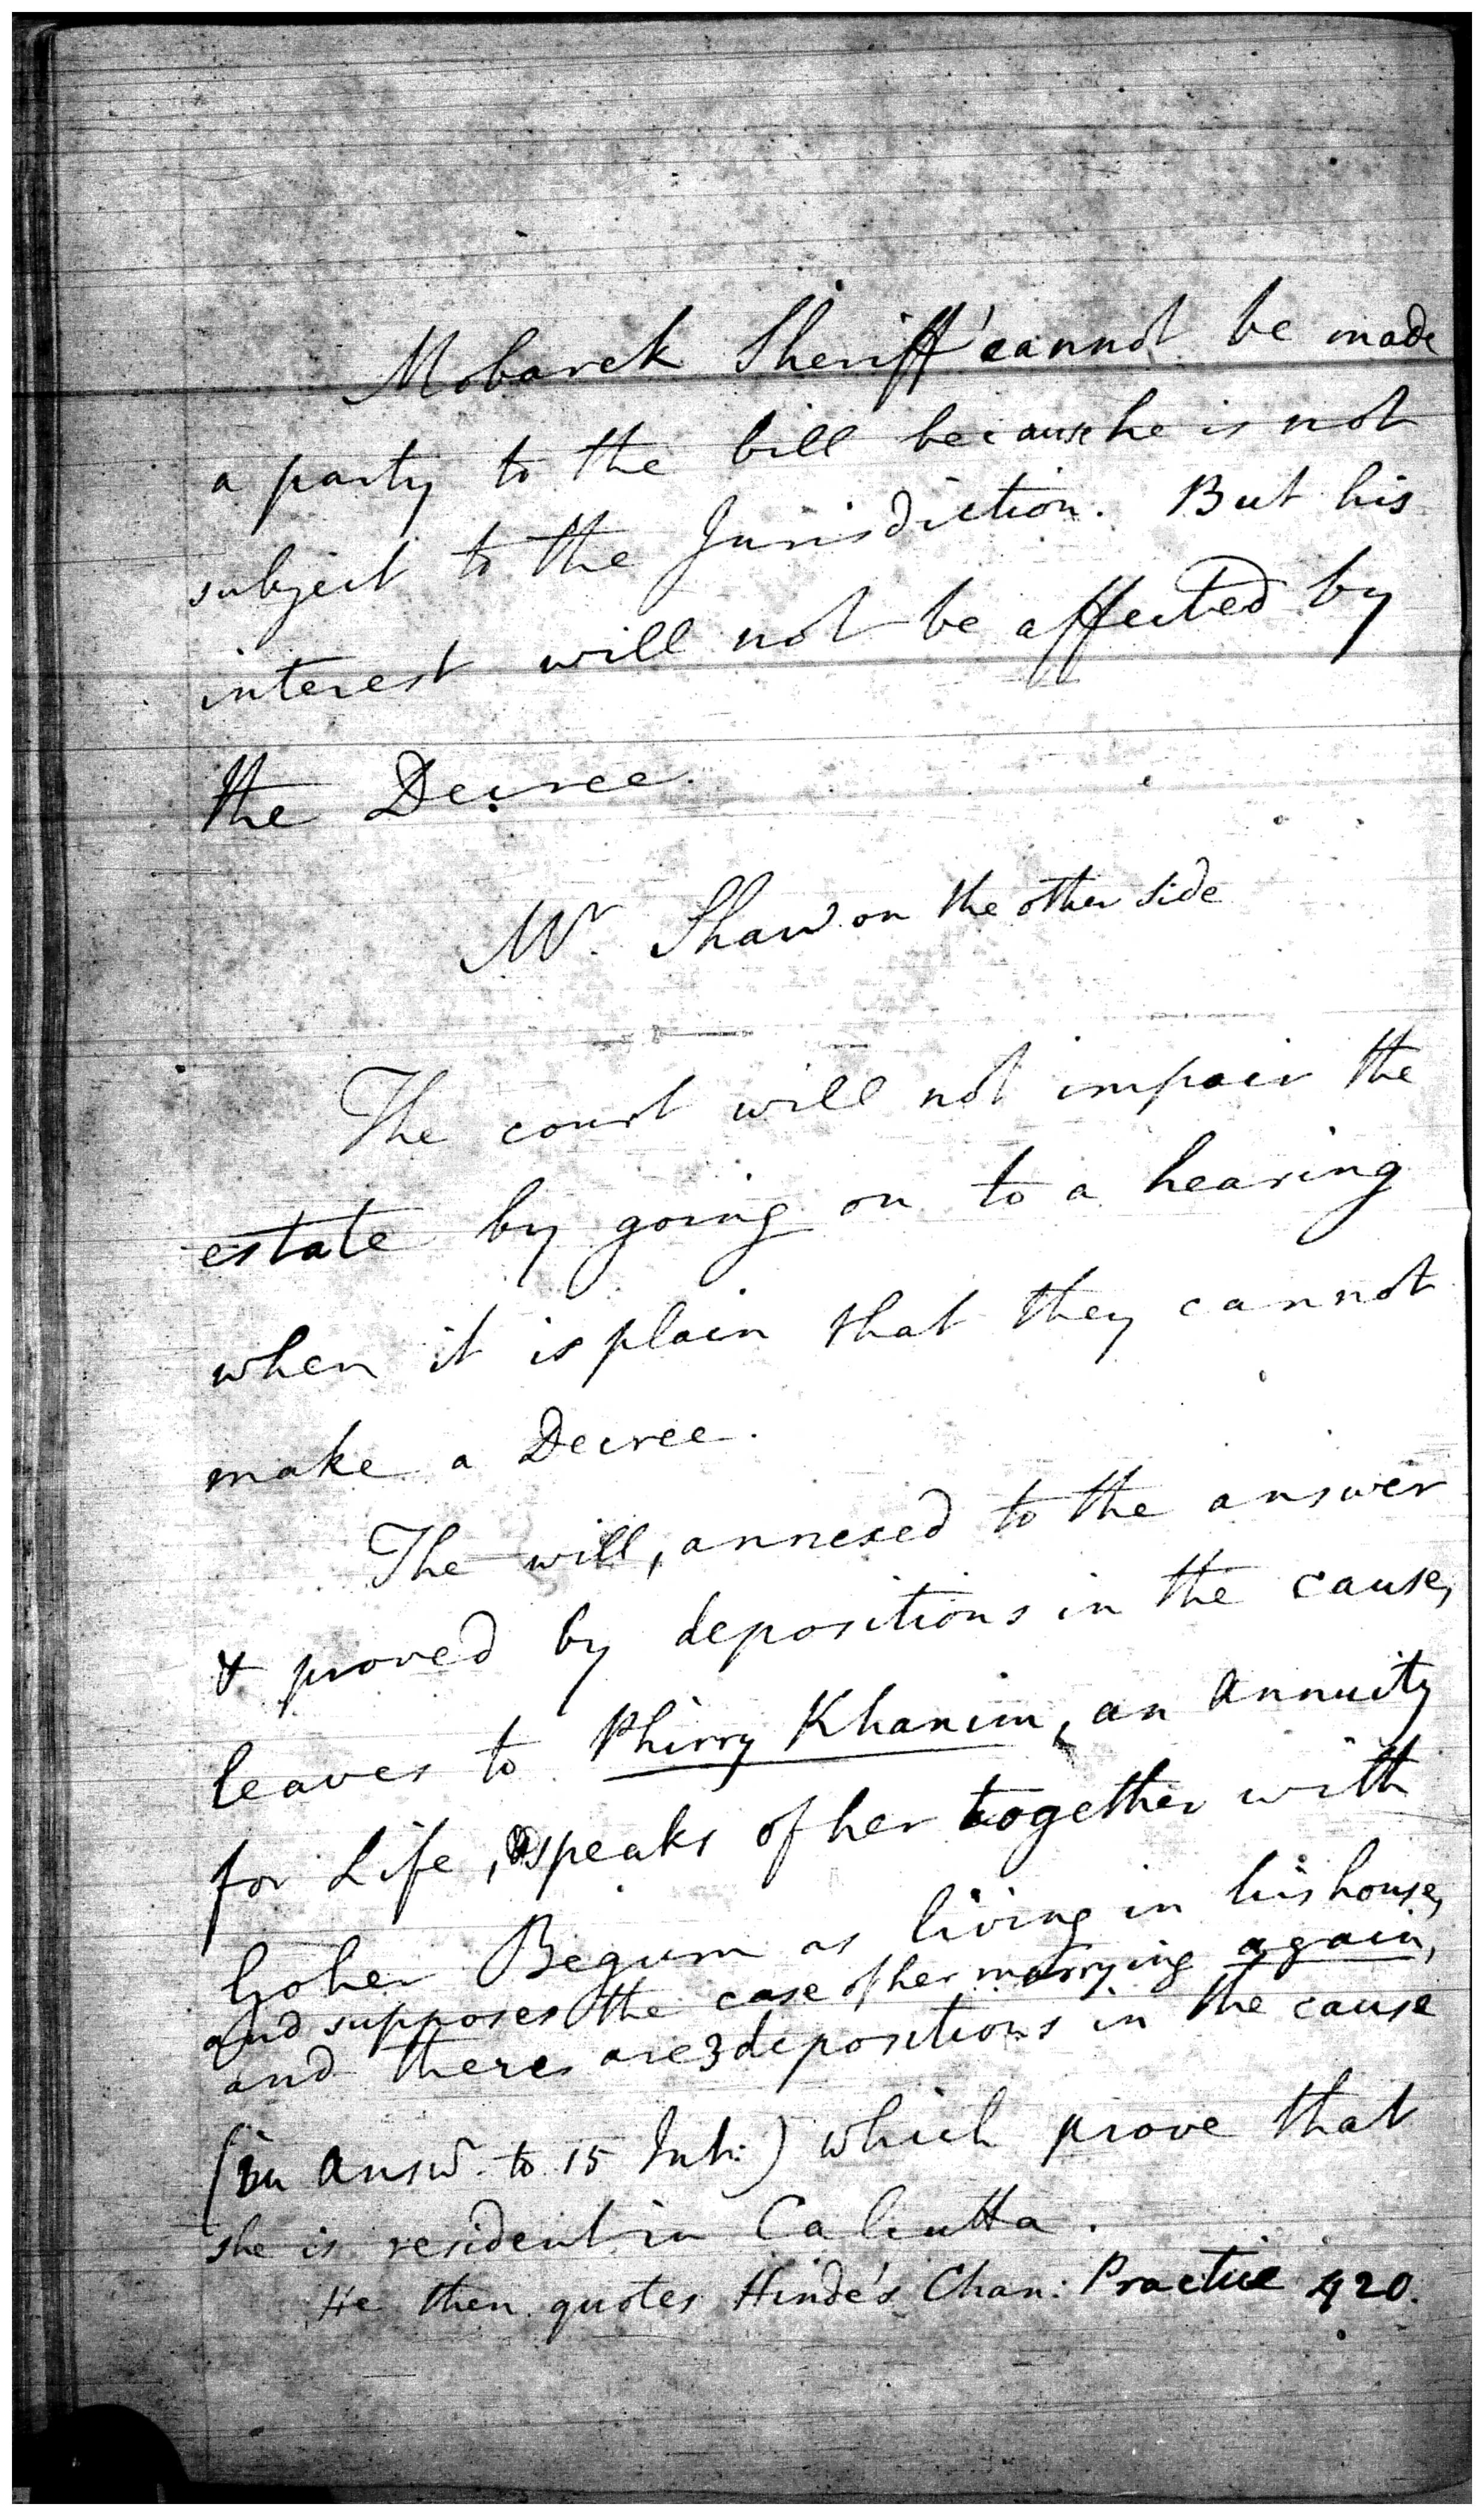 Mobarek Sheriff cannot be made
a party to the bill because he is not
subject to the Jurisdiction. But his
interest will not be affected by
the Decree.
Mr. Shaw on the other side
The court will not impair the
estate by going on to a hearing
when it is plain that they cannot
make a Decree.
The will, annexed to the answer
& proved by depositions in the cause,
leaves to Phirry Khanim, an Annuity
for Life, speaks of her together with
Goher Begum as living in his house,
and supposes the case of her marrying again,
and there are 3 depositions in the cause
(in Answr. to 15 Intr:) which prove that
she is resident in Calcutta.
He then quotes Hinde's Chan: Practice 420.